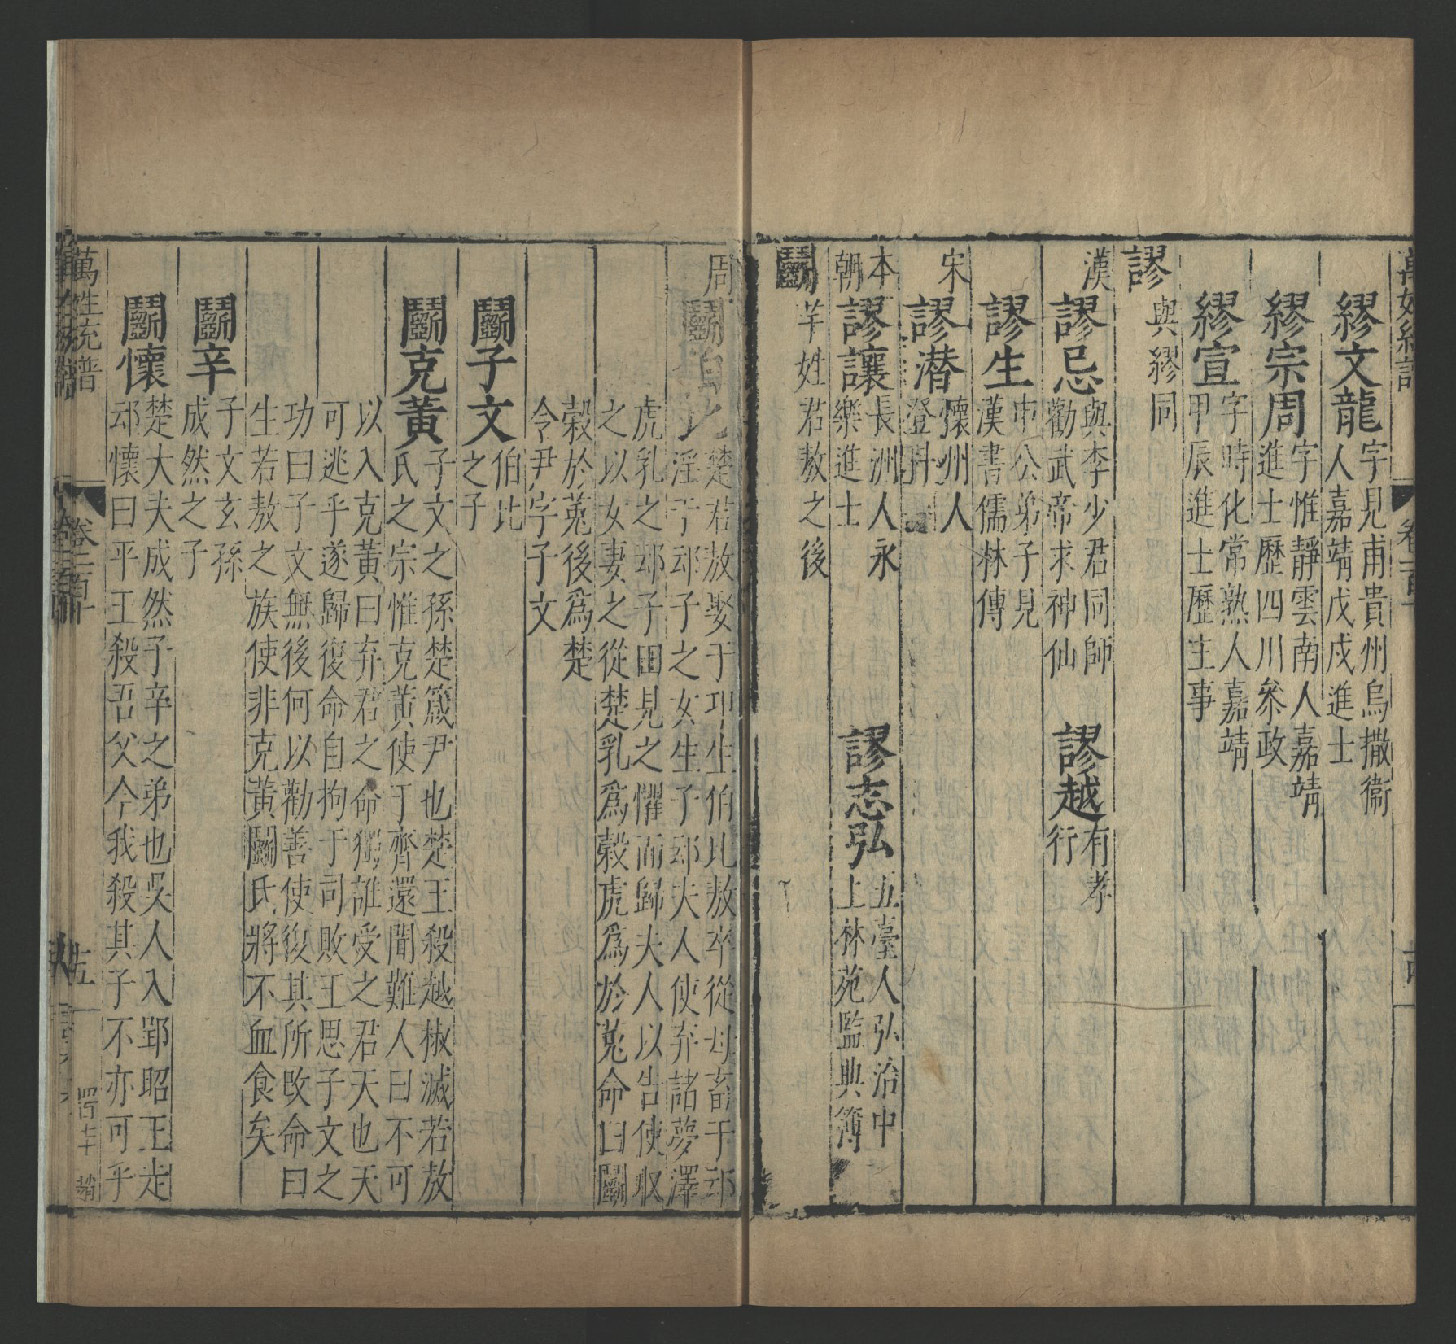 繆文龍字見甫貴州烏撒衞
人嘉靖戊戌進士
繆宗周字惟靜雲南人嘉靖
進士歷四川參政
繆宣字時化常熟人嘉靖
甲辰進士歷主事
謬
與繆同
漢
謬忌與李少君同師
勸武帝求神仙
謬越有孝
行
謬生申公弟子見
漢書儒林傳
宋
謬潛懷州人
登科
本
朝
謬讓長洲人永
樂進士
謬志弘五臺人弘治中
上林苑監典簿
鬭
芉姓君敖之後
周
鬭伯比楚若敖娶于䢵生伯比敖卒從母畜于䢵
淫于䢵子之女生子䢵夫人使弃諸夢澤
虎乳之䢵子田見之懼而歸夫人以告使收
之以女妻之從楚乳爲榖虎爲於菟命曰鬭
榖於菟後爲楚
令尹字子文
鬭子文伯比
之子
鬭克黃子文之孫楚箴尹也楚王殺越椒滅若敖
氏之宗惟克黃使于齊還聞難人曰不可
以入克黃曰弃君之命獨誰受之君天也天
可逃乎遂歸復命自拘于司敗王思子文之
功曰子文無後何以勸善使復其所改命曰
生若敖之族使非克黃鬭氏將不血食矣
鬭辛子文玄孫
成然之子
鬭懷楚大夫成然子辛之弟也吳人入郢昭王走
䢵懷曰平王殺吾父今我殺其子不亦可乎
萬姓統譜
卷一百十
十五